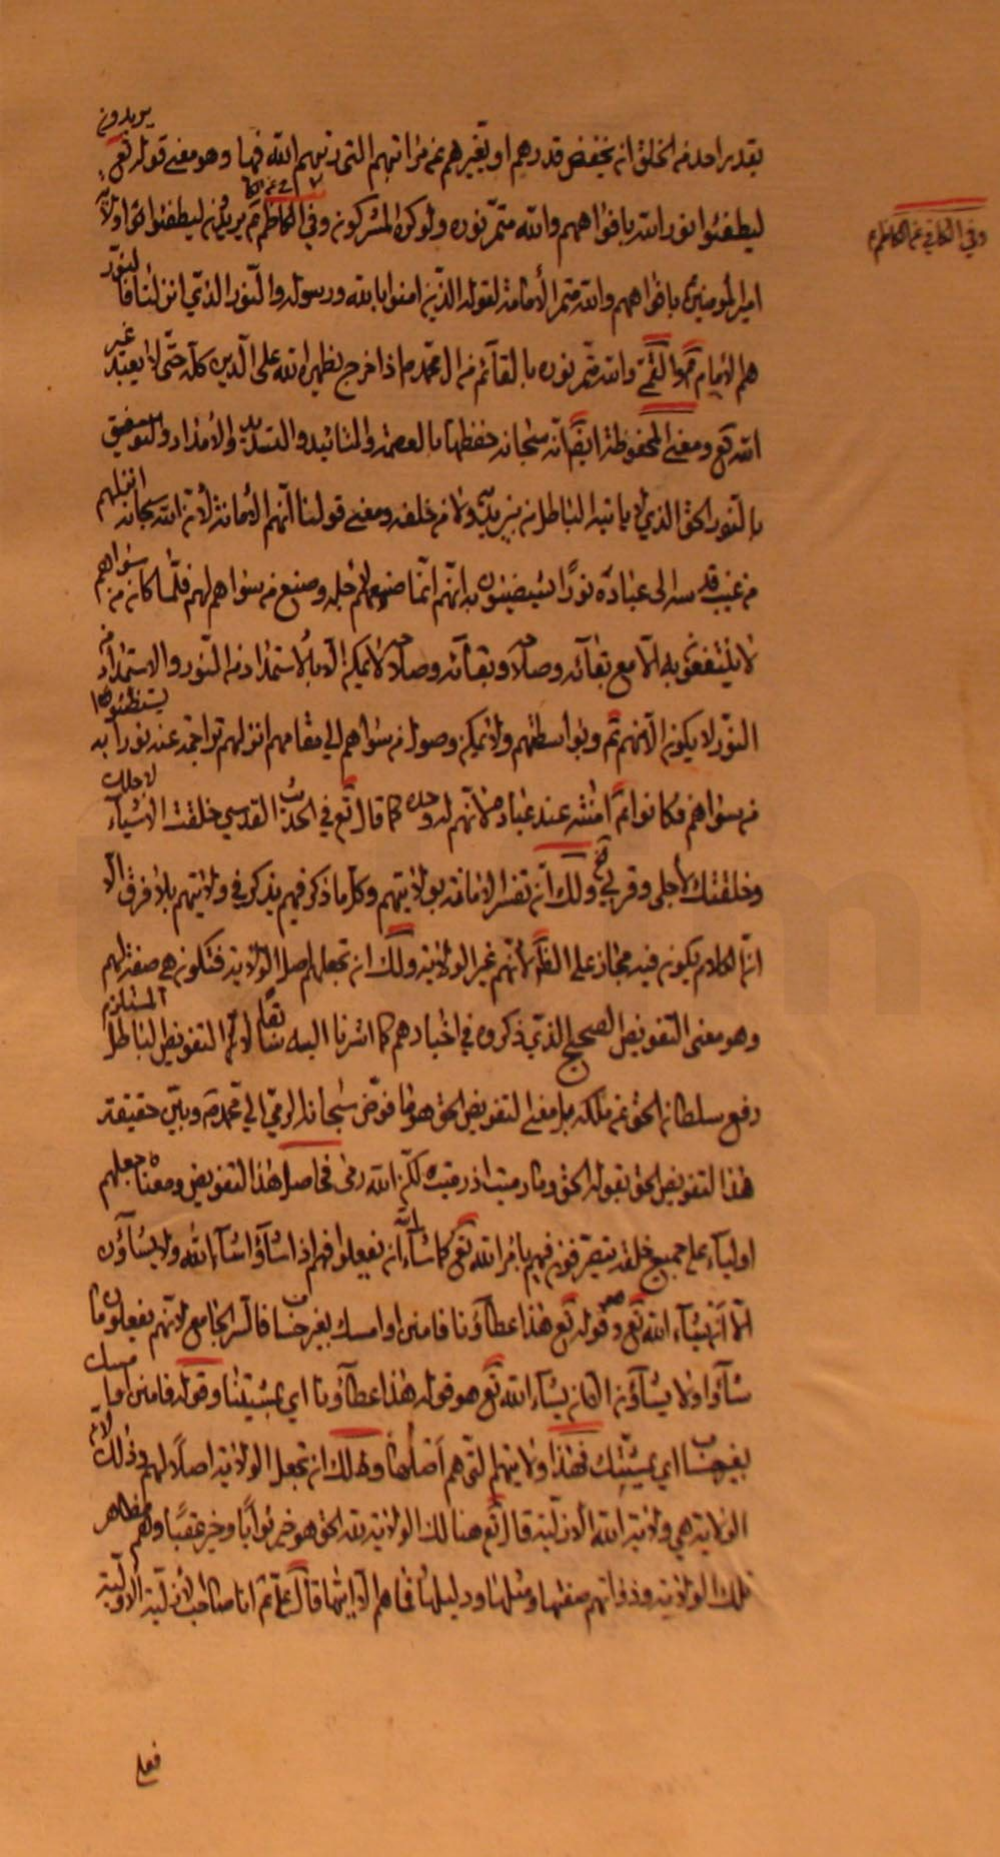 يقدر احد من الخلق ان يخفض قدرهم او يغيرهم عن مراتبهم التى رتبهم الله فيها وهو معنى قوله تع يريدون
ليطفئوا نور الله بافواههم والله متم نوره ولو كره المشركون وفى الكاظم ع يريدون ليطفئوا ولاية
وفى الكافى عن الكاظم ع
امير المؤمنين ع بافواههم والله متم الأمامة لقوله الذين امنوا بالله ورسوله والنور الذى انزلنا فالنور
هم الامام والله متم نوره بالقائم من ال محمد ص اذا خرج يظهره الله على الدين كله حتى لا يعبد غير
الله تع ومعنى المحفوظة ايضا انه سبحانه حفظها بالعصمة والتائيد والتسديد والامداد والتوفيق
بالنور الحق الذى لا ياتيه الباطل من بين يديه ولا من خلفه ومعنى قولنا انهم الامانة لأن الله سبحانه انزلهم
من غيب قدسه الى عباده نورًا يستضيئون به انهم انما صنعهم لأجله وصنع من سواهم لهم فلما كان من سواهم
لا ينتفعون به الا مع بقائه وصلاحه وبقائه وصلاحه لا يمكن الا بالاستمداد من النور والاستمداد من
النور لا يكون الا بهم ع وبواسطتهم ولا يمكن وصول من سواهم الى مقامهم انزلهم تراجمة عنه نورا يستضئ به
من سواهم فكانوا ع امنته عند عباده لأنهم له وحده كما قال تع فى الحديث القدسي خلقت الاشياء لاجلك
وخلقتك لأجلى وقربى ولك ان تفسر الامانة بولايتهم وكل ما ذكر فيهم يذكر فى ولايتهم بلا فرق الا
ان الكلام يكون فيه مجاز على الظ لانهم غير الولاية ولك ان تجعلهم اصل الولاية فتكون هى صفة لهم
وهو معنى التفويض الصحيح الذى ذكروه فى اخبارهم كما اشرنا اليه سابقا لا التفويض الباطل المستلزم
رفع سلطان الحق عن ملكه بل معنى التفويض الحق هو ما فوّض سبحانه الوحى الى محمد ص وبين حقيقة
هذا التفويض الحق بقوله الحق وما رميت اذ رميت ولكن الله رمى فحاصل هذا التفويض ومعناه جعلهم
اولياء على جميع خلقه يتصرفون فيهم بامر الله تع كما شاء ان يفعلوا فهم اذا شاؤا شاء الله ولا يشاؤن
الا ان يشاء الله تع وقوله تع هذا عطاؤنا فامنن او امسك بغير حساب فالسر الجامع لانهم يفعلون ما
شاؤا ولا يشاؤن الا ان يشاء الله تع هو قوله هذا عطاؤنا اى بمشيتنا وقوله فامنن او امسك
بغير حساب اى بمشيتك فهذا ولايتهم التى هم اصلها ولك ان تجعل الولاية اصلاً لهم وذلك لان
الولاية هى ولاية الله الازلية قال تع هنالك الولاية لله الحق هو خير ثوابًا وخير عقبًا وهم مظاهر
تلك الولاية وذواتهم صفتها ومثلها ودليلها فما هم الا ايتها قال على ع انا صاحب الازلية الاولية
فعلى